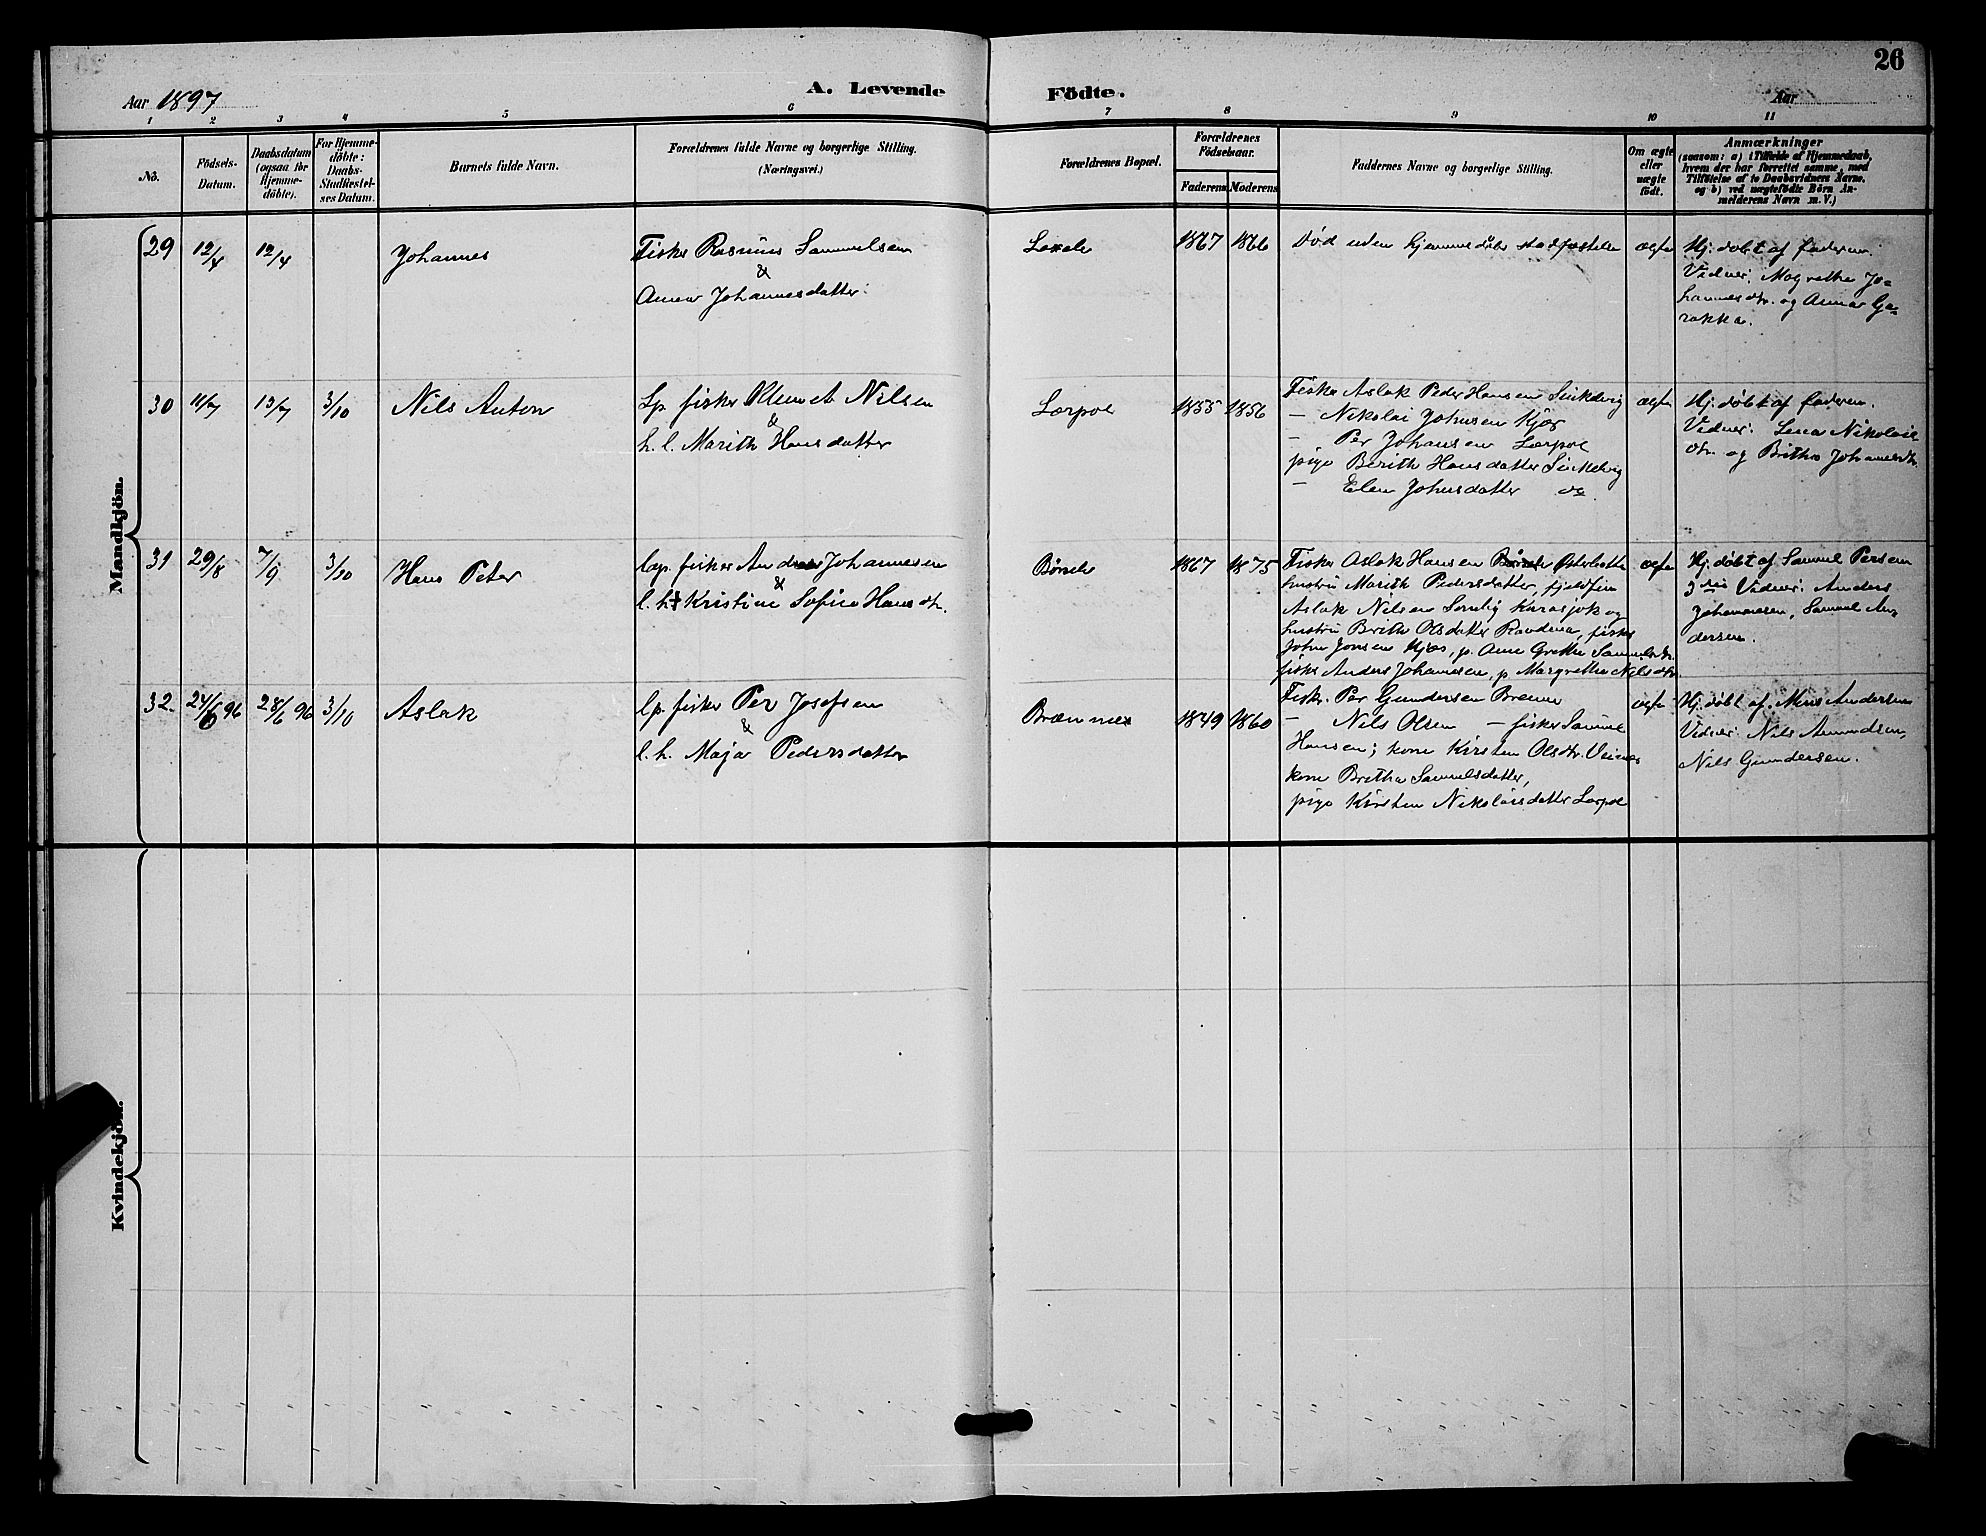 26
Aar 1897
A. Levende Födte.
Aar
1 2 3 4 5 6 7 8 9 10 11
No.
Födsels-Datum.
Daabsdatum (ogsaa for Hjemme-døbte).
For Hjemme-döbte: Daabs-Stadfæstel-ses Datum.
Barnets fulde Navn.
Forældrenes fulde Navne og borgerlige Stilling. (Næringsvei.)
Forældrenes Bopæl.
Forældrenes Födselsaar.
Faderens Moderens
Faddernes Navne og borgerlige Stilling.
Om ægte eller uægte födt.
Anmærkninger
(saasom: a) i Tilfælde af Hjemmedaab,
hvem der har forrettet samme, med
Tilföielse af to Daabsvidners Navne,
og b) ved uægtefödte Börn An-
melderens Navn m. V.)
Mandkjön.
29 12/4 12/4
Johannes
Fisker Rasmus Samuelsen
&
Anna Johannesdatter
1867 1866
Død uden hjemmedåbs stadfæstelse
ægte
Hj. døbt af faderen.
Vidner: Magrethe Jo-
hannesdtr. og Anna Ga-
rakka.
30 11/7 13/7 3/10
Nils Anton
Lp. fisker Klemet Nilsen
&
h. l. Marith Hansdatter
Lærpol
1855 1856
Fisker Aslak Peder Hansen
— Nikolai Johnsen Kjær
— Per Johansen Lærpol
pige Berith Hansdatter
— Elen Johnsdatter do.
ægte
Hj. døbt af faderen.
Vidner: Lena Nikolais
dtr. og Britha Johannesdtr.
31 29/8 7/9 3/10
Hans Peter
lap. fisker Anders Johannesen
&
l. h. Kristine Sofie Hansdtr.
Børsele
1867 1875
Fisker Aslak Hansen Østerbotn
hustru Marith Pedersdatter, fjeldfin
Aslak Nilsen Somby Karasjok og
hustru Brith Olsdatter Ravdna, fisker
John Jonsen Kjæs, p. Ane Grethe Samuelsdtr.
fisker Anders Johannesen, p. Margrethe Nilsdtr.
ægte
Hj. døbt af Samuel Persen
Vidner: Anders
Johannesen, Samuel An-
dersen.
32. 24/6 96 28/6 96 3/10
Aslak
lp. fisker Per Josefsen
&
l. h. Maja Pedersdatter
1849 1860
Fisk. Per Gundersen Brenna
— Nils Olsen — fisker Samuel
Hansen; kone Kirsten Olsdtr. Veines
kone Britha Samuelsdatter,
pige Kirsten Nikolaisdatter Lærpol
ægte
Hj. døbt af Andersen
Vidner: Nils Amundsen,
Nils Gundersen.
Kvindekjön.